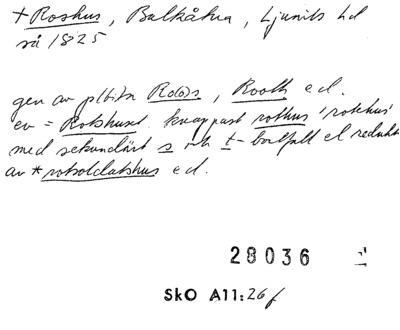 + Roshus, Balkåkra, Ljunits hd
så 1825
gen av pl(bitn Ro(o)s, Rooth e.d.
ev = Rotehuset. knappast rothus 'rotehus'
med sekundärt s och t-bortfall el redukt
av * rotsoldatshus e d.
28036
SkO A11:26f